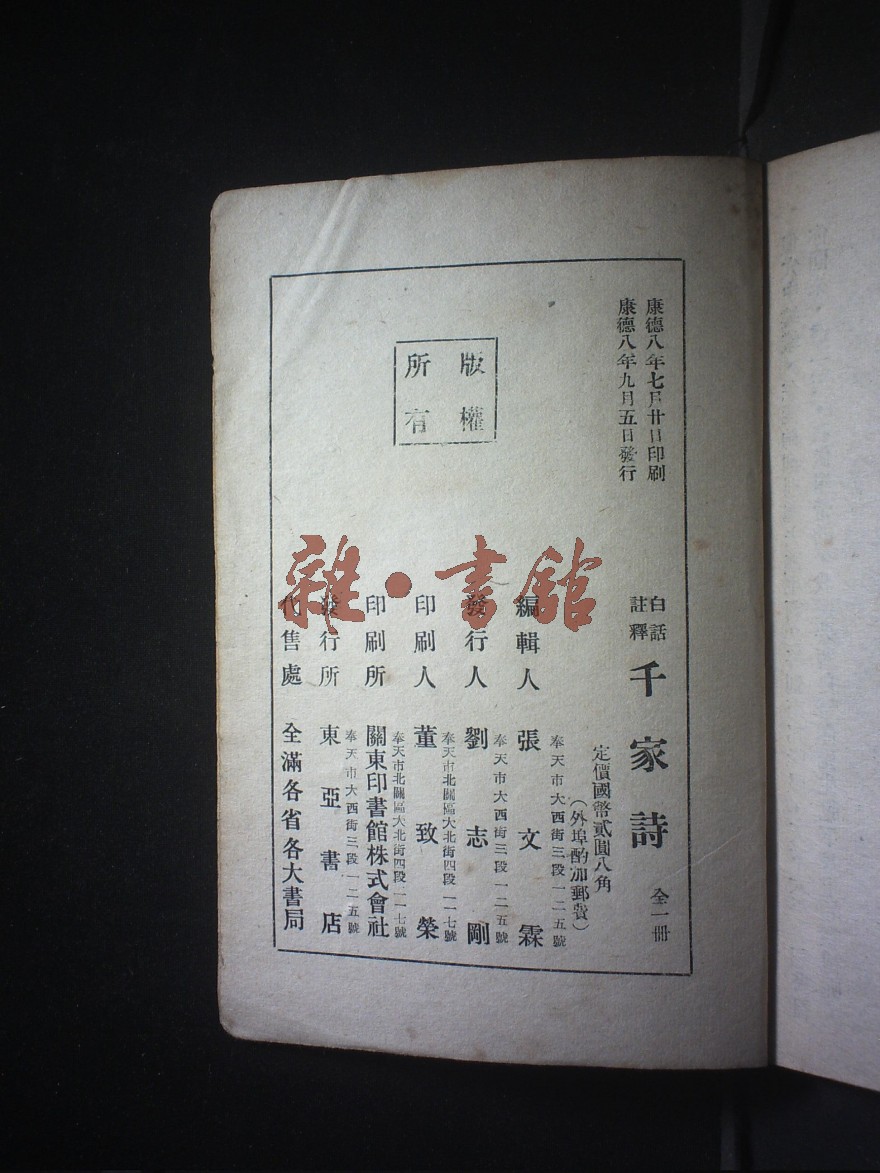 康德八年七月廿日印刷
康德八年九月五日發行
版權
所有
白話
註釋
千家詩 全一冊
定價國幣貳圓八角
（外埠酌加郵費）
奉天市大西街三段一二五號
編輯人 張文霖
奉天市大西街三段一二五號
發行人 劉志剛
奉天市北關區大北街四段一一七號
印刷人 董致榮
奉天市北關區大北街四段一一七號
印刷所 關東印書館株式會社
奉天市大西街三段一二五號
發行所 東亞書店
代售處 全滿各省各大書局
雜·書館